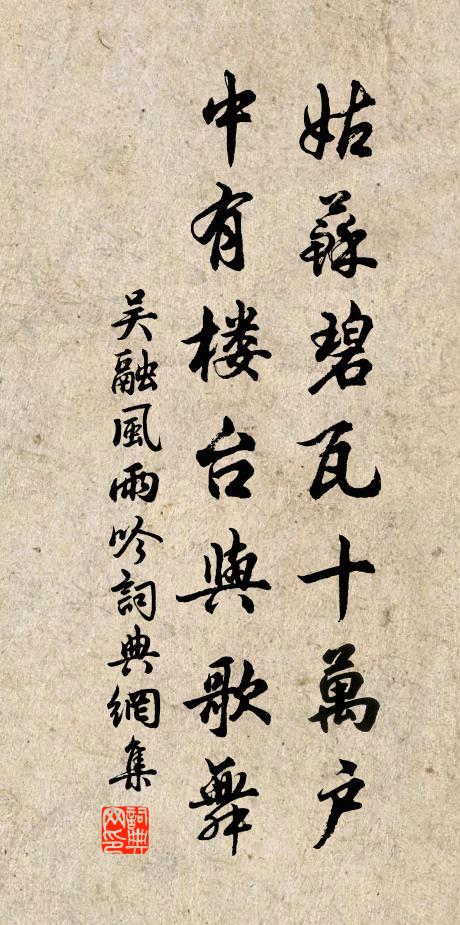 姑蘇碧瓦十萬户
中有楼台與歌舞
吴融風雨吟詞典網集
詞典網印